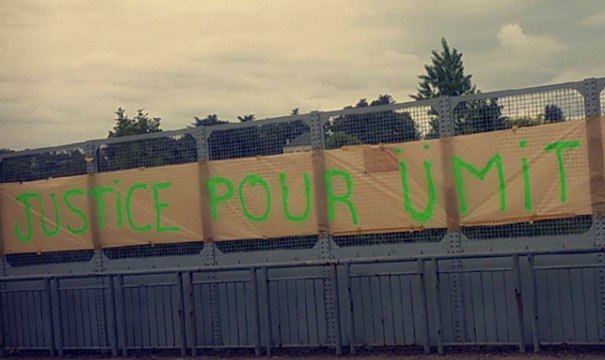 JUSTiCE POUR ÜMiT